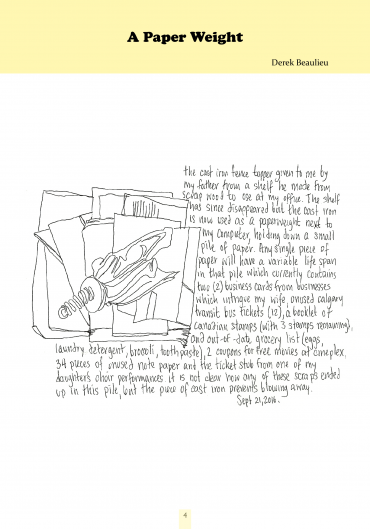 A Paper Weight
Derek Beaulieu
the cast iron fence topper given to me by
my father from a shelf he made from
scrap wood to use at my office. The shelf
has since disappeared but the cast iron
is now used as a paperweight next to
my computer, holding down a small
pile of paper. Any single piece of
paper will have a variable life span
in that pile which currently contains
two (2) business cards from businesses
which intrigue my wife, unused calgary
transit bus tickets (12), a booklet of
Canadian stamps (with 3 stamps remaining),
and out-of-date grocery list (eggs,
laundry detergent, broccoli, toothpaste), 2 coupons for free movies at cineplex,
34 pieces of unused note paper and the ticket stub from one of my
daughter's choir performances. it is not clear how any of these scraps ended
up in this pile, but the piece of cast iron prevents blowing away.
Sept 21, 2016.
4